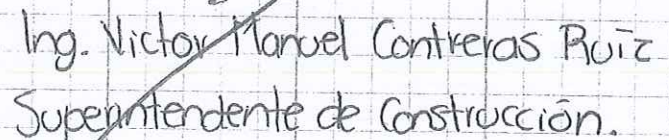 Ing. Victor Manuel Contreras Ruiz
Superintendente de Construcción.